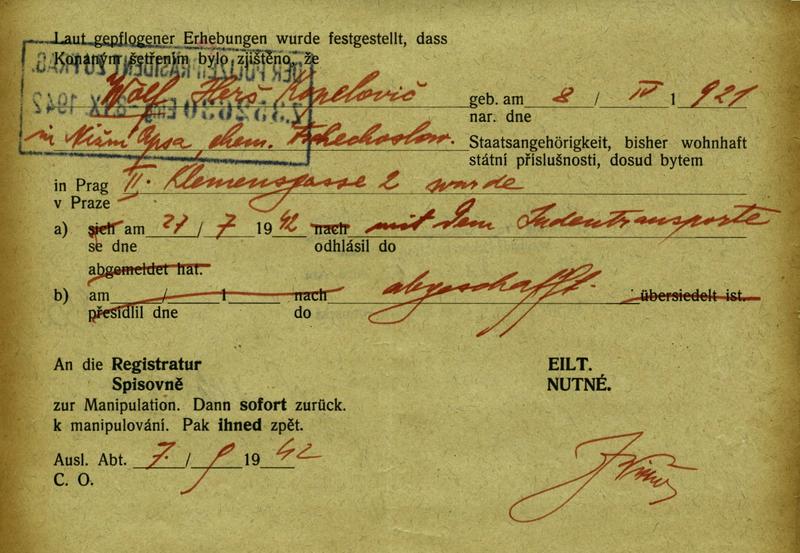 Laut gepflogener Erhebungen wurde festgestellt, dass
Konaným šetřením bylo zjištěno, že
DER POLIZEIPRÄSIDENT ZU PRAG.
Wolf Herš Kopelovič geb. am 8 / IV 1921
nar. dne
in Nižní Apsa, ehem. Tschechoslow. Staatsangehörigkeit, bisher wohnhaft
státní příslušnosti, dosud bytem
in Prag II. Klemensgasse 2 wurde
v Praze
a) sich am 27 / 7 1942 nach mit dem Judentransporte
se dne odhlásil do
abgemeldet hat.
b) am / 1 nach abgeschafft. übersiedelt ist.
přesídlil dne do
An die Registratur EILT.
Spisovně NUTNÉ.
zur Manipulation. Dann sofort zurück.
k manipulování. Pak ihned zpět.
Ausl. Abt. 7. / 9 1942
C. O.